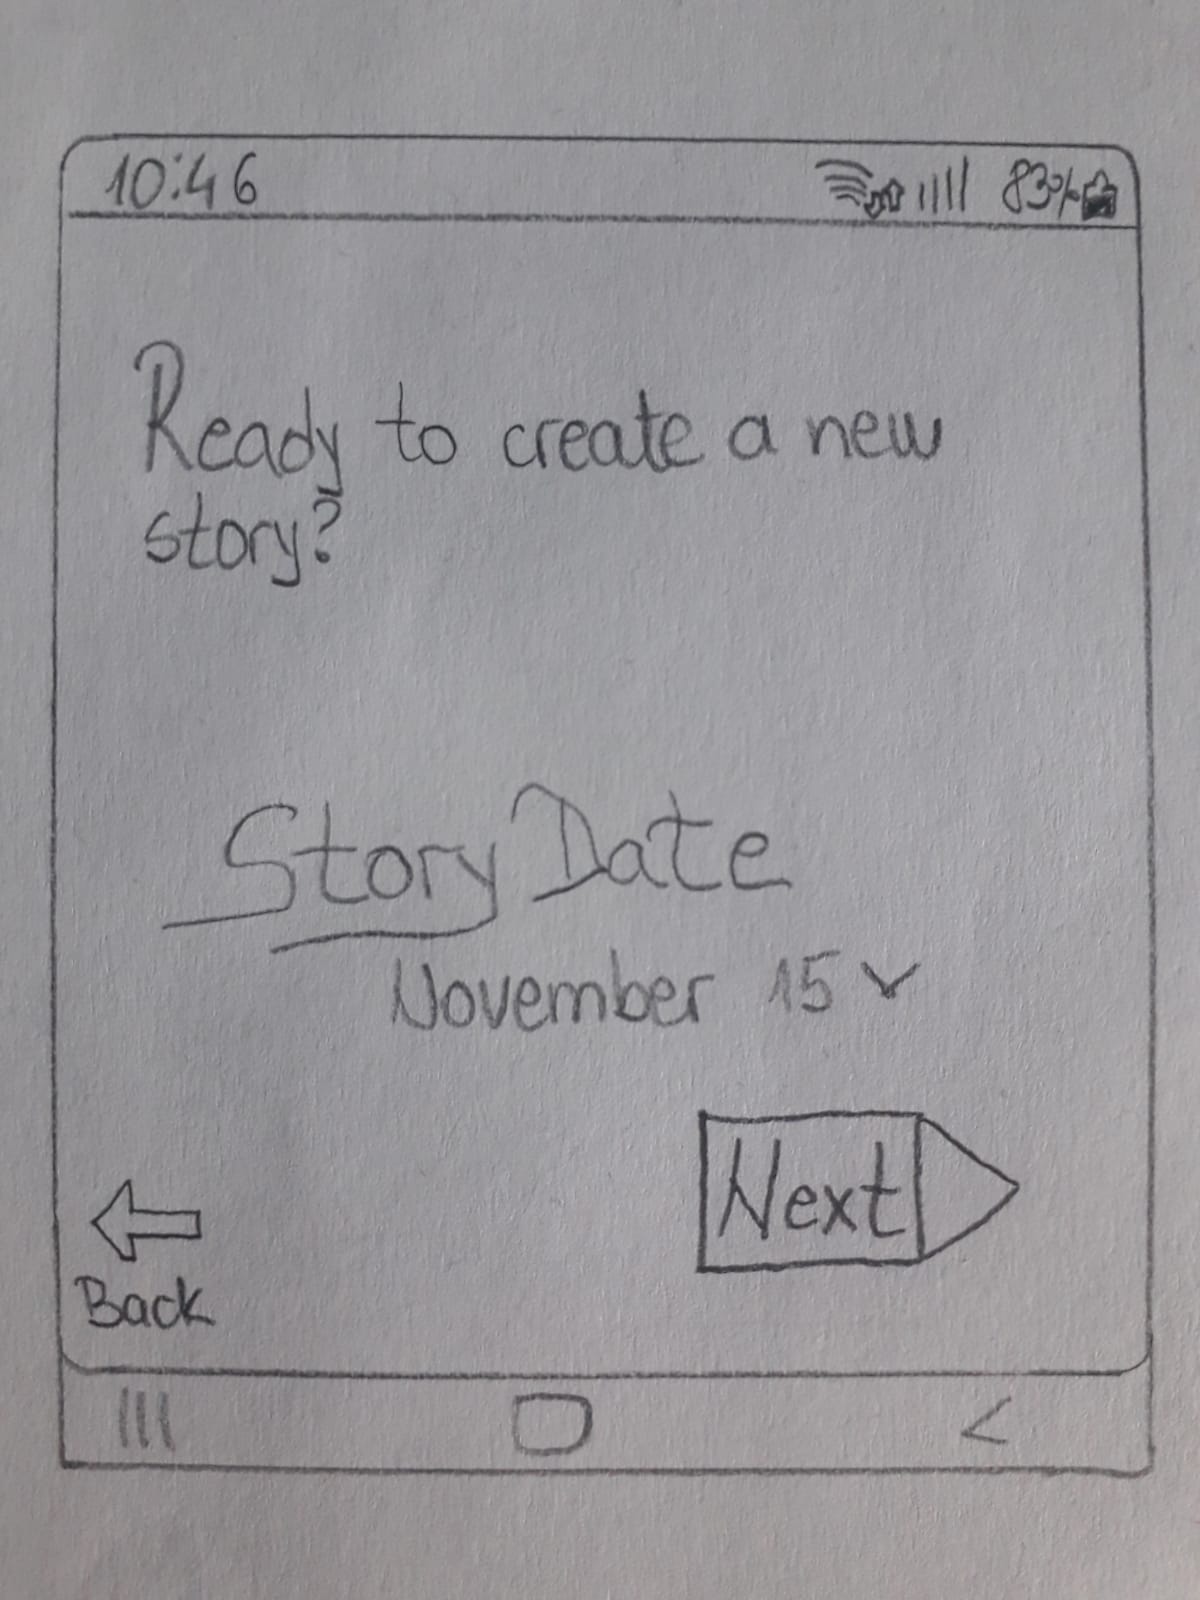 10:46 83%
Ready to create a new
story?
Story Date
November 15
Next
Back